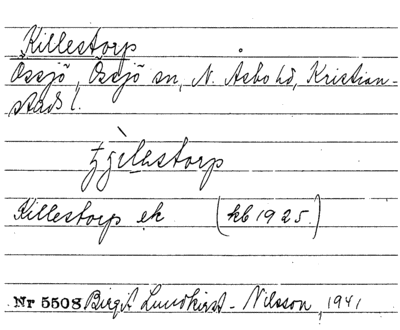 Killestorp
Össjö, Össjö sn, N. Åsbo hd, Kristian-
stads l.
Killestorp ek (kb 1925.)
Nr 5508 Birgit Lundkvist - Nilsson, 1941